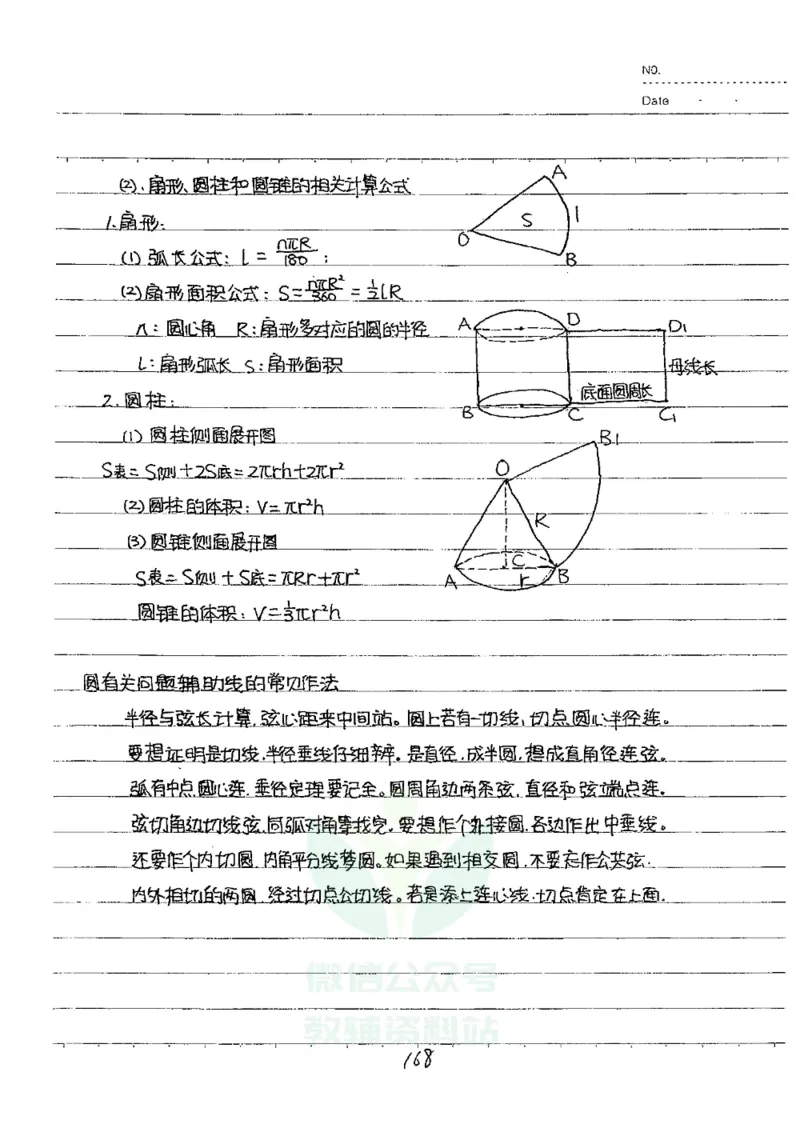 NO.
Date
(2)、扇形、圆柱和圆锥的相关计算公式
1.扇形:
(1) 弧长公式: l = nπR/180 ;
(2)扇形面积公式: S=nπR²/360 = ½lR
n: 圆心角 R:扇形多对应的圆的半径
l:扇形弧长 S:扇形面积
O
A
S
l
B
2.圆柱:
(1) 圆柱侧面展开图
S表= S侧+2S底=2πrh+2πr²
(2)圆柱的体积: V=πr²h
A
D
D1
母线长
底面圆周长
B
C
C1
(3)圆锥侧面展开图
S表= S侧 + S底=πRr+πr²
圆锥的体积: V=⅓πr²h
B1
O
R
C
A
r
B
圆有关问题辅助线的常见作法
半径与弦长计算,弦心距来中间站。圆上若有一切线,切点圆心半径连。
要想证明是切线,半径垂线仔细辨。是直径,成半圆,想成直角径连弦。
弧有中点圆心连,垂径定理要记全。圆周角边两条弦,直径和弦端点连。
弦切角边切线弦,同弧对角等找完,要想作个外接圆,各边作出中垂线。
还要作个内切圆,内角平分线梦圆。如果遇到相交圆,不要忘作公共弦.
内外相切的两圆,经过切点公切线。若是添上连心线,切点肯定在上面.
微信公众号
教辅资料站
168